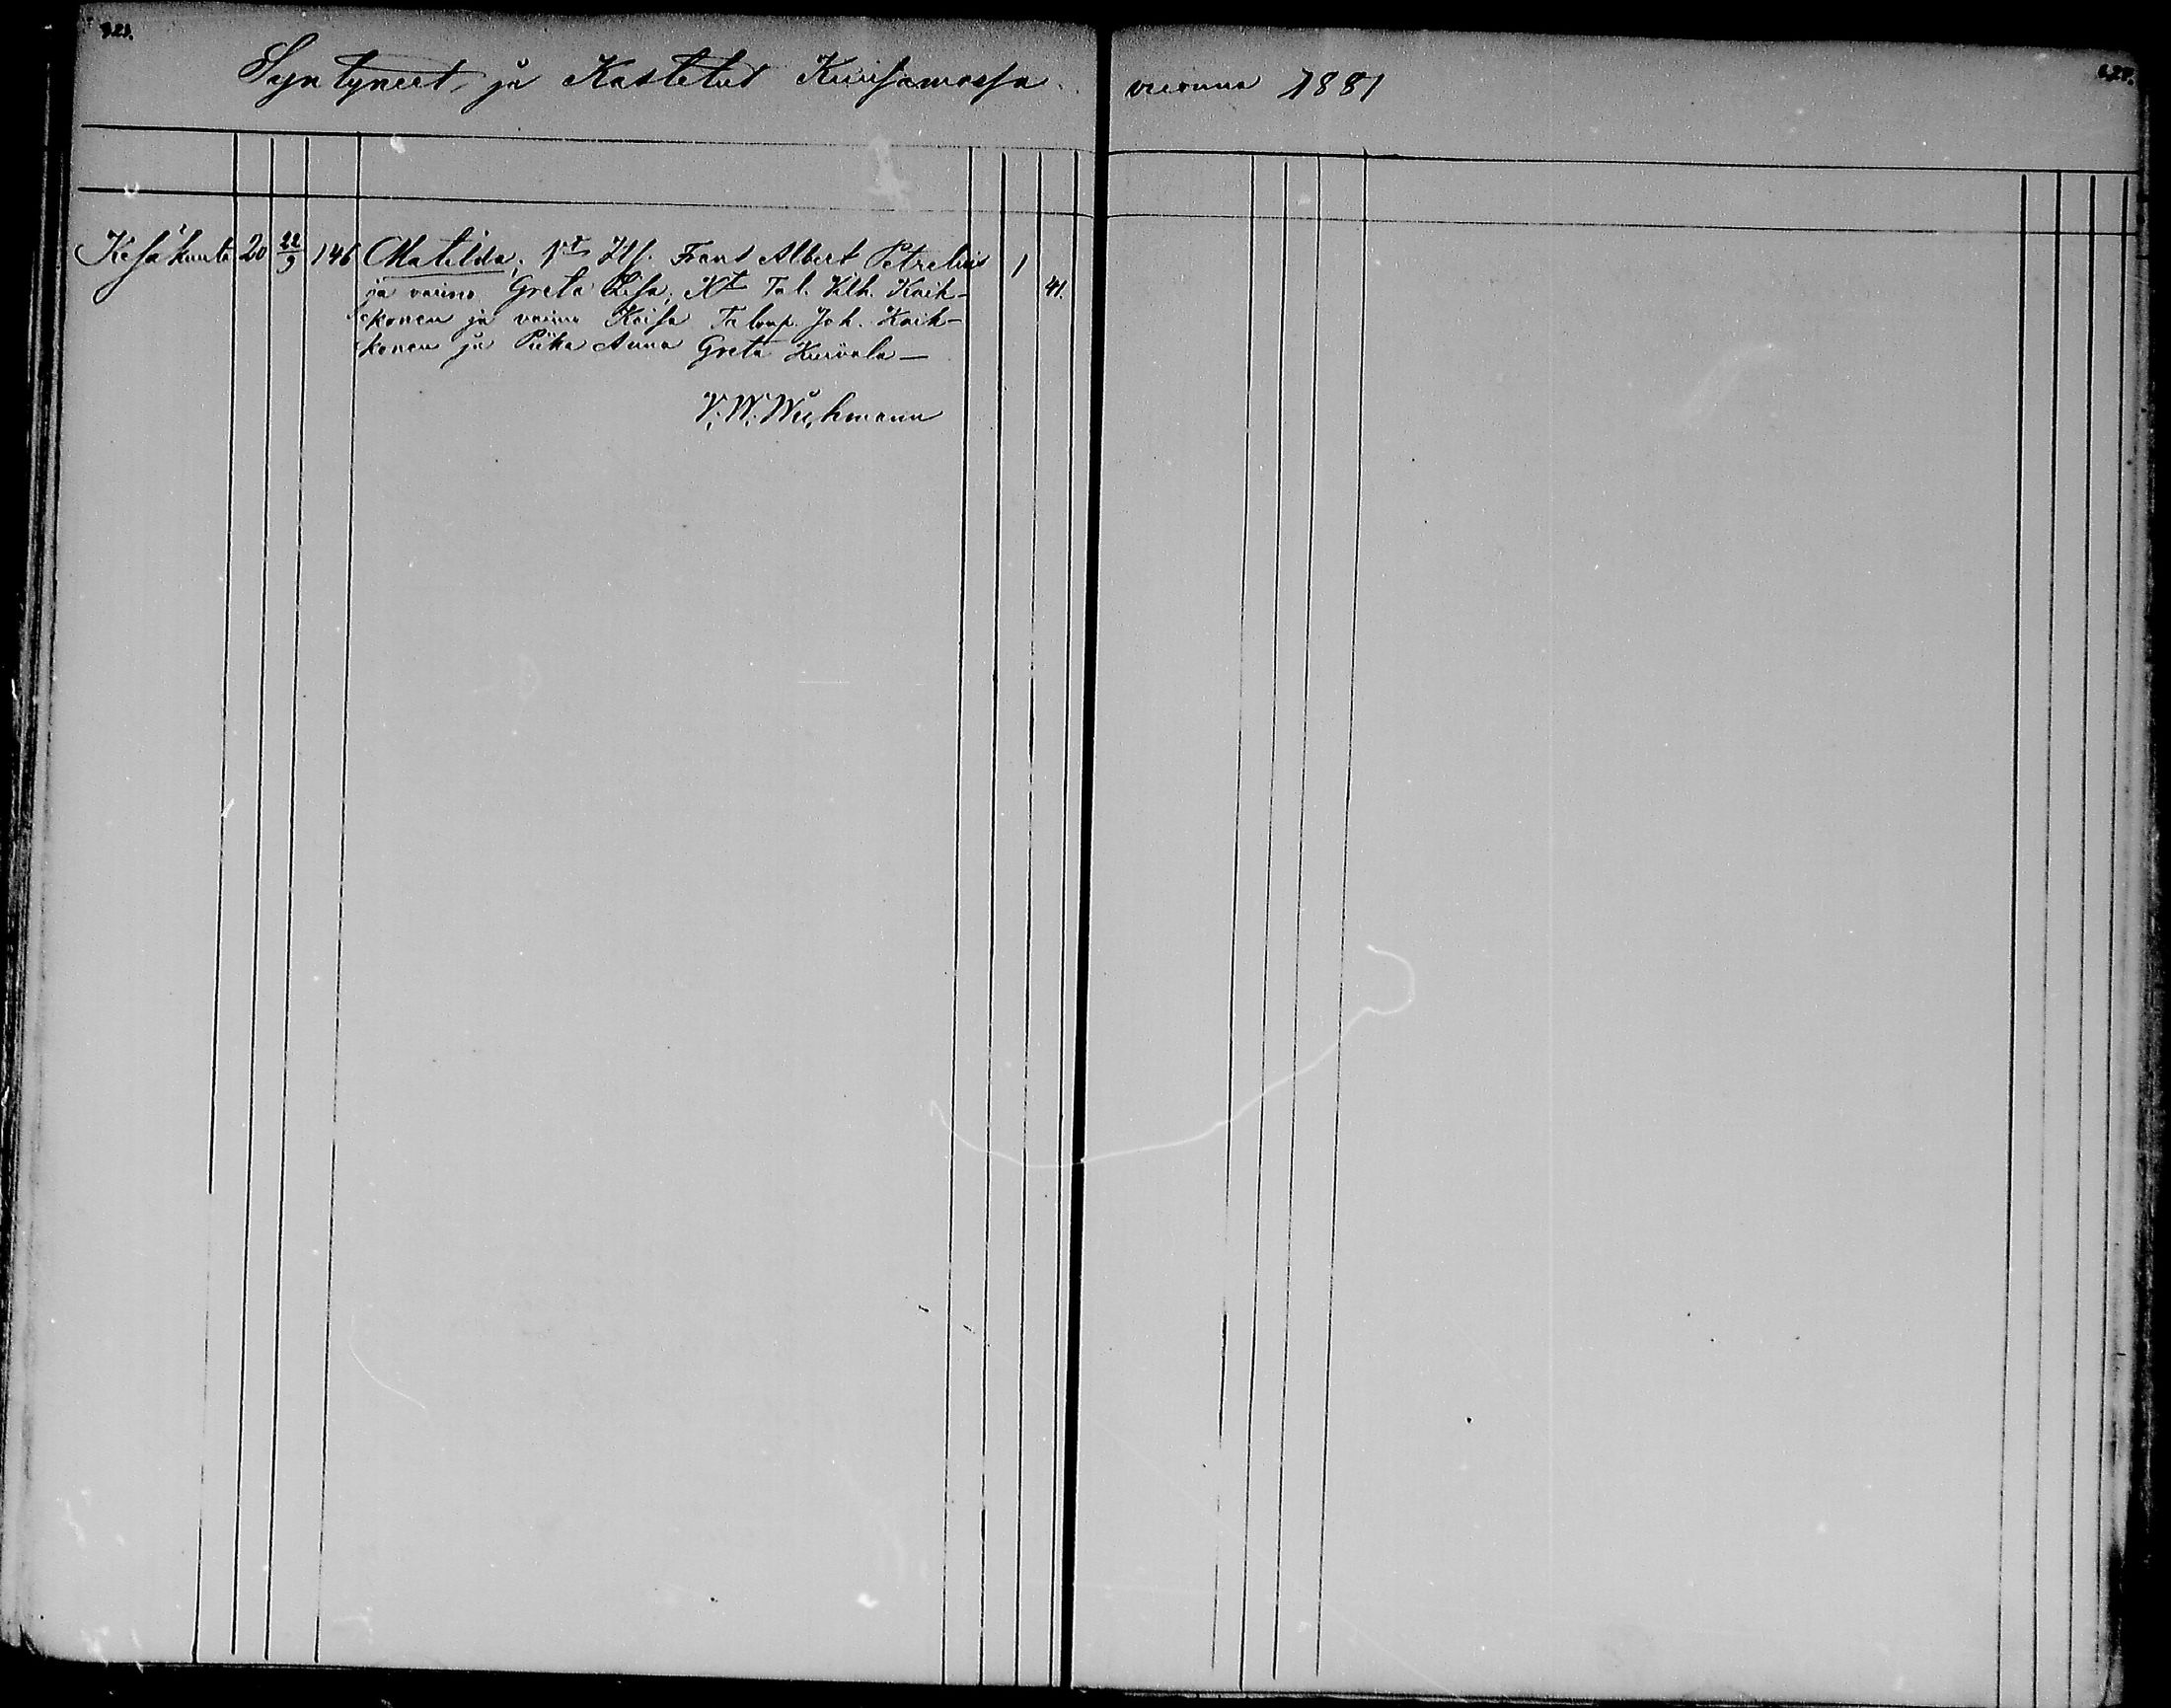 Syntyneet ja Kastetut Kuusamossa vuonna 1881
Kesäkuuta 20 22/9 146 Matilda; Vt Itf. Frans Albert Petrelius 1
ja vaimo Greta Lisa; Kt Tal. Vilh. Kaik- 41.
konen ja vaimo Kaisa Talonp. Joh. Kaik-
konen ja Piika Anna Greta Kurvala —